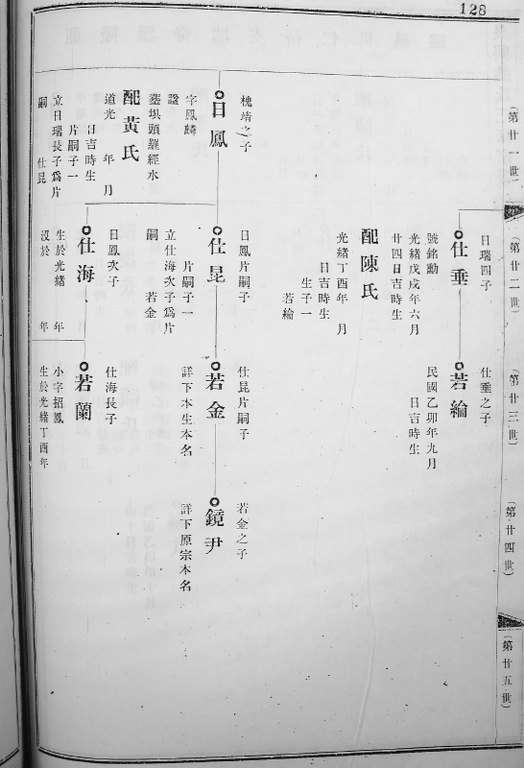 128
(第廿一世)
(第廿二世)
(第廿三世)
(第廿四世)
(第廿五世)
日瑞四子
仕垂
號銘勳
光緒戊戌年六月
廿四日吉時生
配陳氏
光緒丁酉年 月
日吉時生
生子一
若綸
仕垂之子
若綸
民國乙卯年九月
日吉時生
槐靖之子
日鳳
字鳳麟
諡
墓埧頭羅經水
配黃氏
道光 年 月
日吉時生
片嗣子一
立日瑞長子為片
嗣 仕昆
日鳳片嗣子
仕昆
片嗣子一
立仕海次子為片
嗣 若金
仕昆片嗣子
若金
詳下本生本名
若金之子
鏡尹
詳下原宗本名
日鳳次子
仕海
生於光緒 年
沒於 年
仕海長子
若蘭
小字招鳳
生於光緒丁酉年